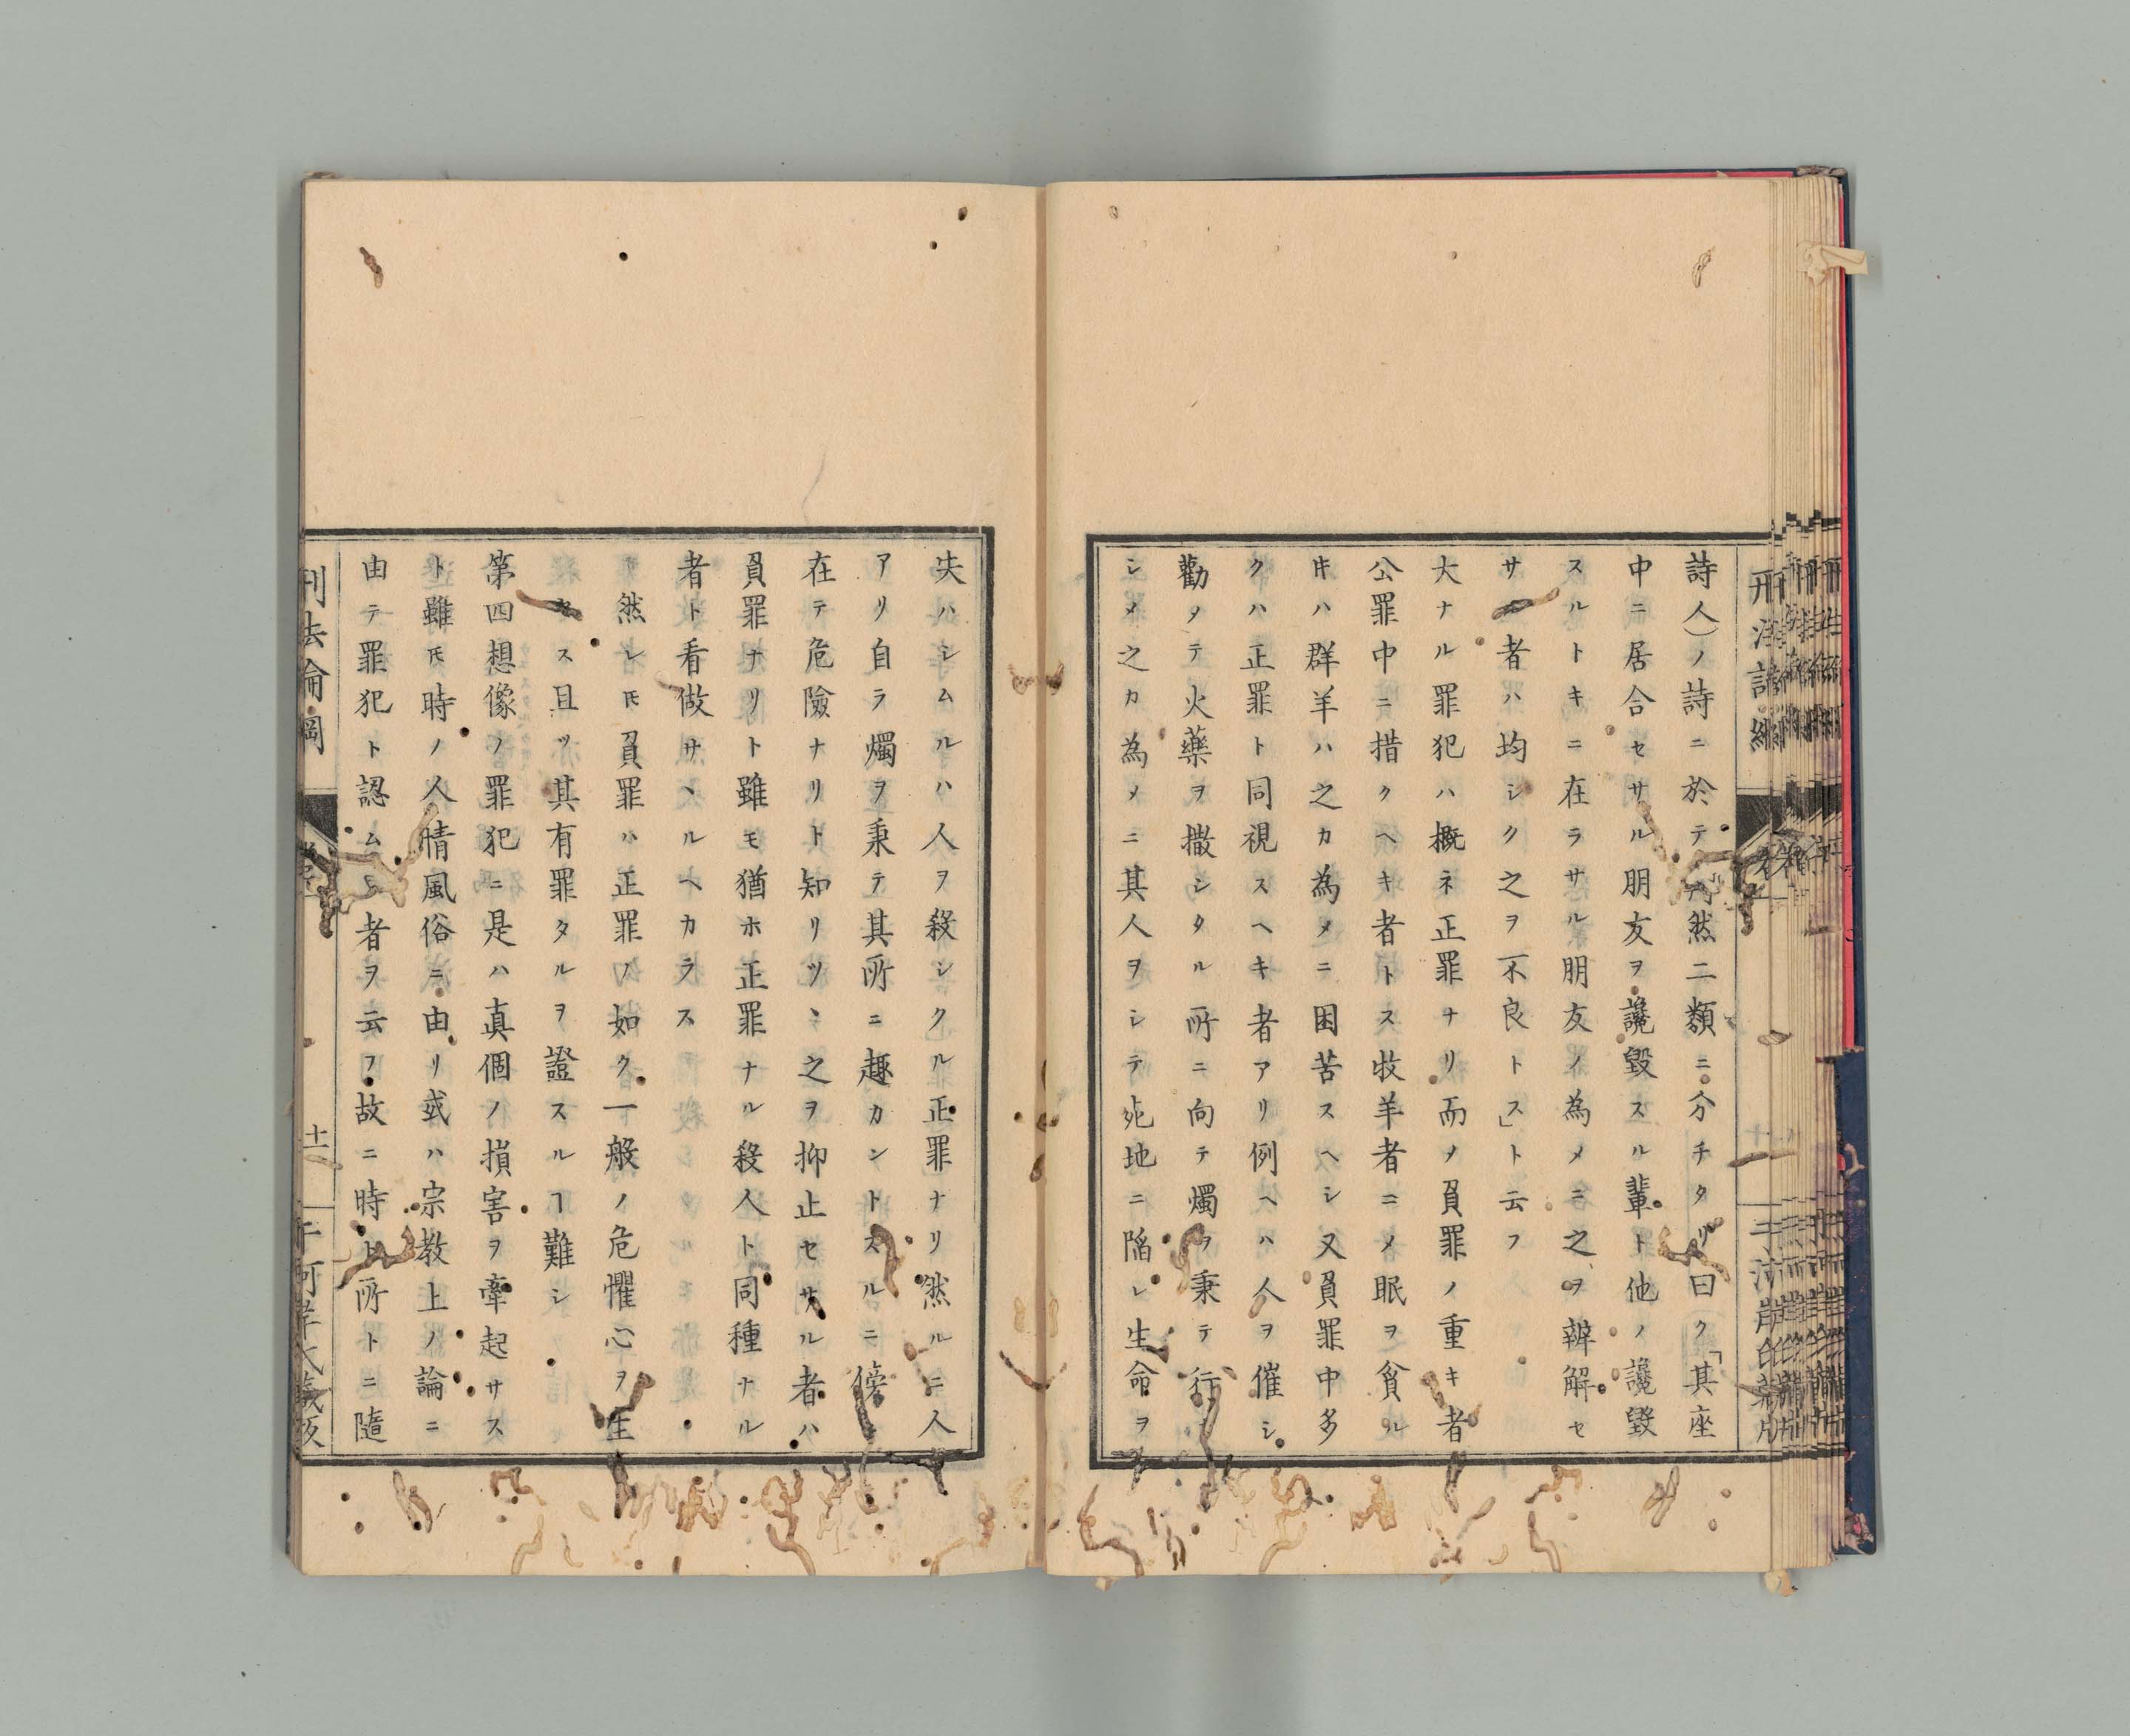 詩人)ノ詩ニ於テ判然二類ニ分チタリ曰ク「其座
中ニ居合セサル朋友ヲ讒毀スル輩ト他ノ讒毀
スルトキニ在ラサル朋友ノ為メニ之ヲ辨解セ
サル者ハ均シク之ヲ不良トス」ト云フ
大ナル罪犯ハ概ネ正罪ナリ而ノ負罪ノ重キ者
公罪中ニ措クヘキ者トス牧羊者ニメ眠ヲ貧ル
片ハ群羊ハ之カ為メニ困苦スヘシ又負罪中多
クハ正罪ト同視スヘキ者アリ例ヘハ人ヲ催シ
勸メテ火藥ヲ撒シタル所ニ向テ燭ヲ秉テ行
シメ之カ為メニ其人ヲシテ死地ニ陥レ生命ヲ
失ハシムルハ人ヲ殺シクル正罪ナリ然ルニ人
アリ自ラ燭ヲ秉テ其所ニ趣カントスルニ傍
在テ危險ナリト知リツヽ之ヲ抑止セサル者ハ
負罪ナリト雖モ猶ホ正罪ナル殺人ト同種ナル
者ト看做サヽルヘカラス
然レ𪜈負罪ハ正罪ノ如ク一般ノ危懼心ヲ生
セス且ツ其有罪タルヲ證スルヿ難シ
第四想像ノ罪犯ニ是ハ真個ノ損害ヲ牽起サス
ト雖𪜈時ノ人情風俗ニ由リ或ハ宗教上ノ論ニ
由テ罪犯ト認ムル者ヲ云フ故ニ時ト所トニ隨
刑法論綱
十一